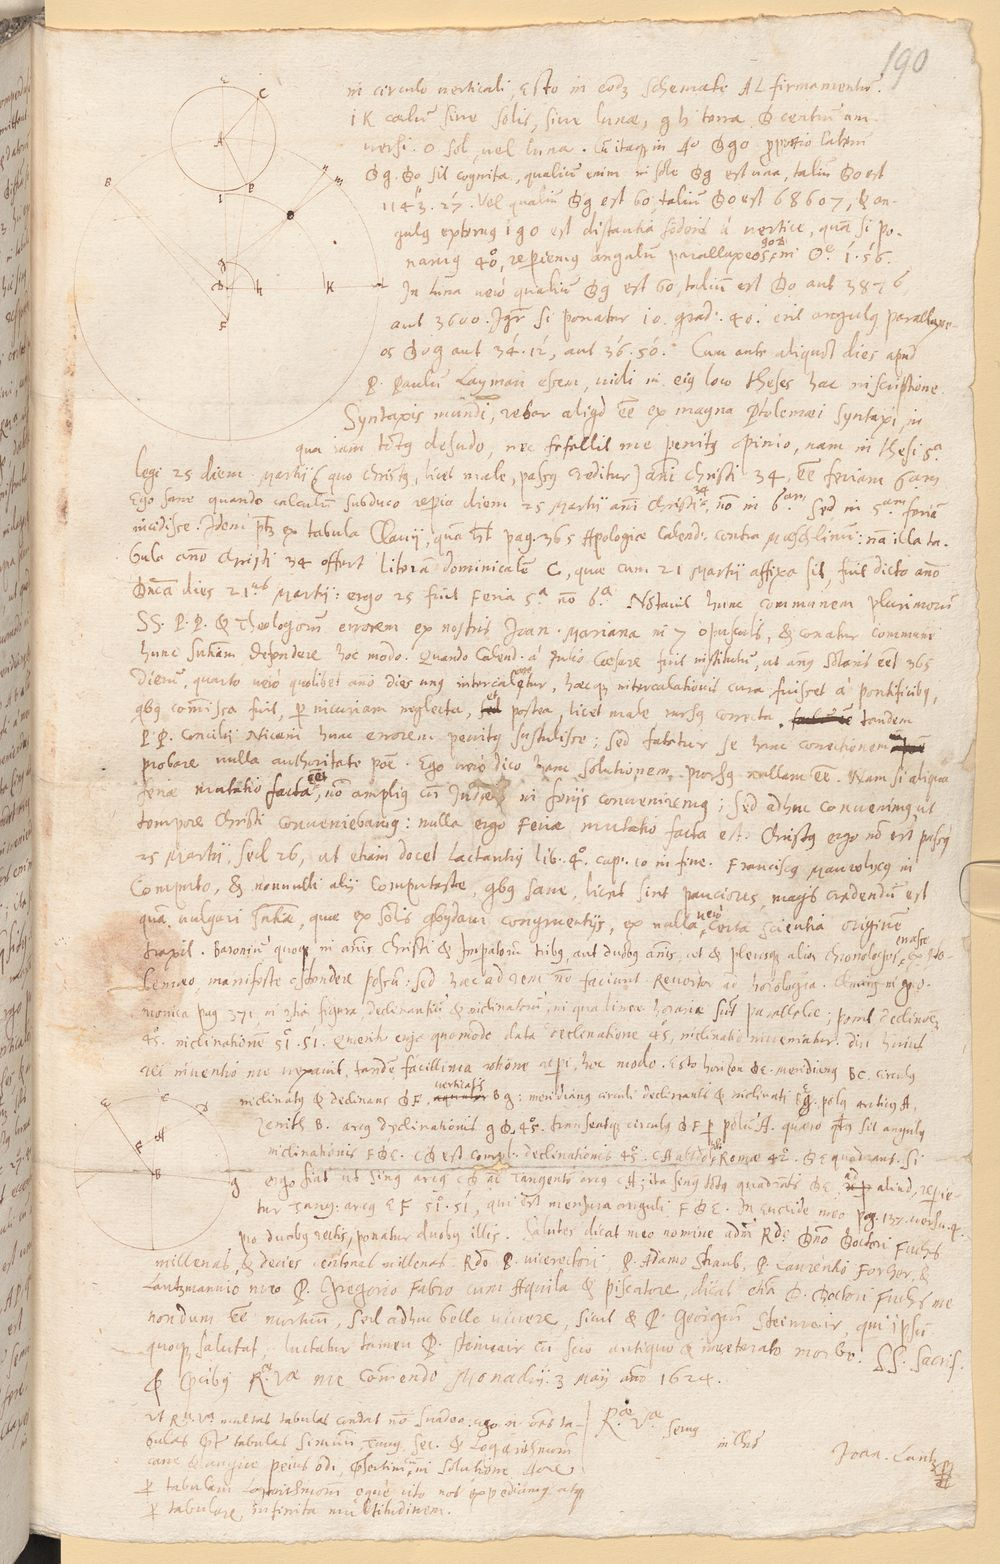 190
in circulo verticali, Esto in eodẽ Schemate AL firmamentũ.
IK cœlũ sive solis, sive lunæ, g h terra D centrũ uni-
versi. O sol, vel luna. Cũ itaq; in Δo Dgo proportio laterũ
Dg. Do sit cognita, qualiũ enim in sole Dg est una, taliũ Do est
1143. 27. Vel qualiũ Dg est 60, taliũ Do est 68607, & an-
gulus externus i g o est distantia sideris à vertice, quã si po-
namus 40, reperiemus angulũ parallaxeos goD in Oe 1. 56.
In luna vero qualiũ Dg est 60, taliũ est Do aut 3876,
aut 3600. Igr si ponatur 10 grad. 40. erit angulus parallaxe-
os Dog aut 34. 12, aut 36. 50. Cum ante aliquot dies apud
P. Paulũ Layman essem, vidi in eius loco theses hac inscriptione
Syntaxis mundi, rebar aliqd eẽ ex magna Ptolemæi Syntaxi, in
qua iam totus desudo, nec fefellit me penitus opinio, nam in thesi 5.a
legi 25 diem Martij (quo Christus, licet male, passus creditur) anni Christi 34, eẽ feriam 6am
Ego sane quando calculũ subduco reperio diem 25 Martij anni Christi 34, nõ in 6.am sed in 5.am feriã
incidisse. Idem ptz ex tabula Clavij, quã hẽt pag. 365 Apologiæ Calend. contra Mæstlinum: nã illa ta-
bula año Christi 34 offert literã dominicalẽ C, quæ cum 21 Martij affixa sit, fuit dicto año
Dñica dies 21us Martij: ergo 25 fuit Feria 5.a nõ 6.a Notavit hunc communem plurimorũ
SS. P.P. & Theologorũ errorem ex nostris Joan. Mariana in 7 opusculis, & conatur communẽ
hanc sñiam defendere hoc modo. Quando Calend. à Julio Cæsare fuit institutũ, ut anus solaris eẽt 365
dierũ, quarto vero quolibet año dies unus intercalaretur, hæcq; intercalationis cura fuisset à pontificibus,
qbus comissa fuit, p incuriam neglecta, et postea, licet male rursus correcta, tandem
P.P. Concilij Niceni hunc errorem penitus sustulisse; sed fatetur se hanc correctionem
probare nulla authoritate poẽ. Ego vero dico hanc solutionem prorsus nullam eẽ. Nam si aliqua
feriæ mutatio facta eẽt, nõ amplius cũ Judæis in ferijs conveniremus; sed adhuc convenimus, ut
tempore Christi conveniebamus: nulla ergo Feriæ mutatio facta est. Christus ergo nõ est passus
25 Martij, sed 26, ut etiam docet Lactantius lib. 4. cap. 10 in fine. Franciscus Maurolycus in
Computo, & nonnulli alij Computistæ, qbus sane, licet sint pauciores, magis credendũ est
quã vulgari sñtiæ, quæ ex solis qbusdam congruentijs, ex nulla vero certa scientia originẽ
traxit. Baroniũ quoq; in añis Christi & Impatorũ tribus, aut duobus añis, ut & plerosq; alios chronologos, errasse ex Pto-
lemæo, manifeste ostendere possũ. Sed hæc ad rem nõ faciunt. Revertor ad horologia. Clavius in gno-
monica pag 371. in 2da figura declinantiũ & inclinatorũ, in qua lineæ horariæ sũt parallelæ; ponit declinaõẽ
45. inclinationẽ 51. 51. Quæris ergo quomodo data declinatione 45, inclinatio inveniatur. Diu huius
rei inventio me vexavit, tandẽ facillima ratione repi, hoc modo. Esto horizon DE. meridianus BC. circulus
inclinatus & declinans DF. verticalis Bg: meridianus circuli declinantis & inclinati Eg. polus arcticus A,
Zenith B. arcus declinationis gD 45. transeatq; circulus DF p polũ A. quæro ptus sit angulus
inclinationis FDE. CD est compl. declinationis 45. CA altdo poli Romæ 42. DE quadrans. Si
ergo fiat ut sinus arcus CD ad Tangentẽ arcus CA; ita sinus totus quadrantis DE ad aliud, reperie-
tur Tang. arcus EF 51. 51, qui est mensura anguli FDE. In Euclide meo pag. 137. versu 4.
pro duobus rectis, ponatur duobus illis. Salutes dicat meo nomine adm Rdo Dño Doctori Fuchs
millenas, & decies centenas millenas. Rdo P. vicerectori, P. Adamo Straub, P. Laurentio Forher, &
Lantzmannio meo P. Gregorio Fabro cum Aquila & Piscatore, dicat etiã D. Doctori Fuchs me
nondum eẽ mortuũ, sed adhuc belle vivere, sicut & P. Georgiũ Steinvair, qui ipsũ
quoq; salutat, luctatur tamen P. Steinvair cũ suo antiquo & inveterato morbo. SS. Sacris.
& Precibus Ræ Væ me comendo Monachij 3 Maij año 1624.
Ræ Væ
servus
in Chr̃o
Joan. Lantz
ut Ra. Va. multas tabulas condat nõ suadeo: ego n. oẽs ta-
bulas præter tabulas sinuũ, Tang. Sec. & Logarithmorũ
cane & angue peius odi, præsertim in solutione Δorũ
p tabulam Logarithmorũ æque cito nos expedimus atq;
p tabularũ infinita multitudinem.